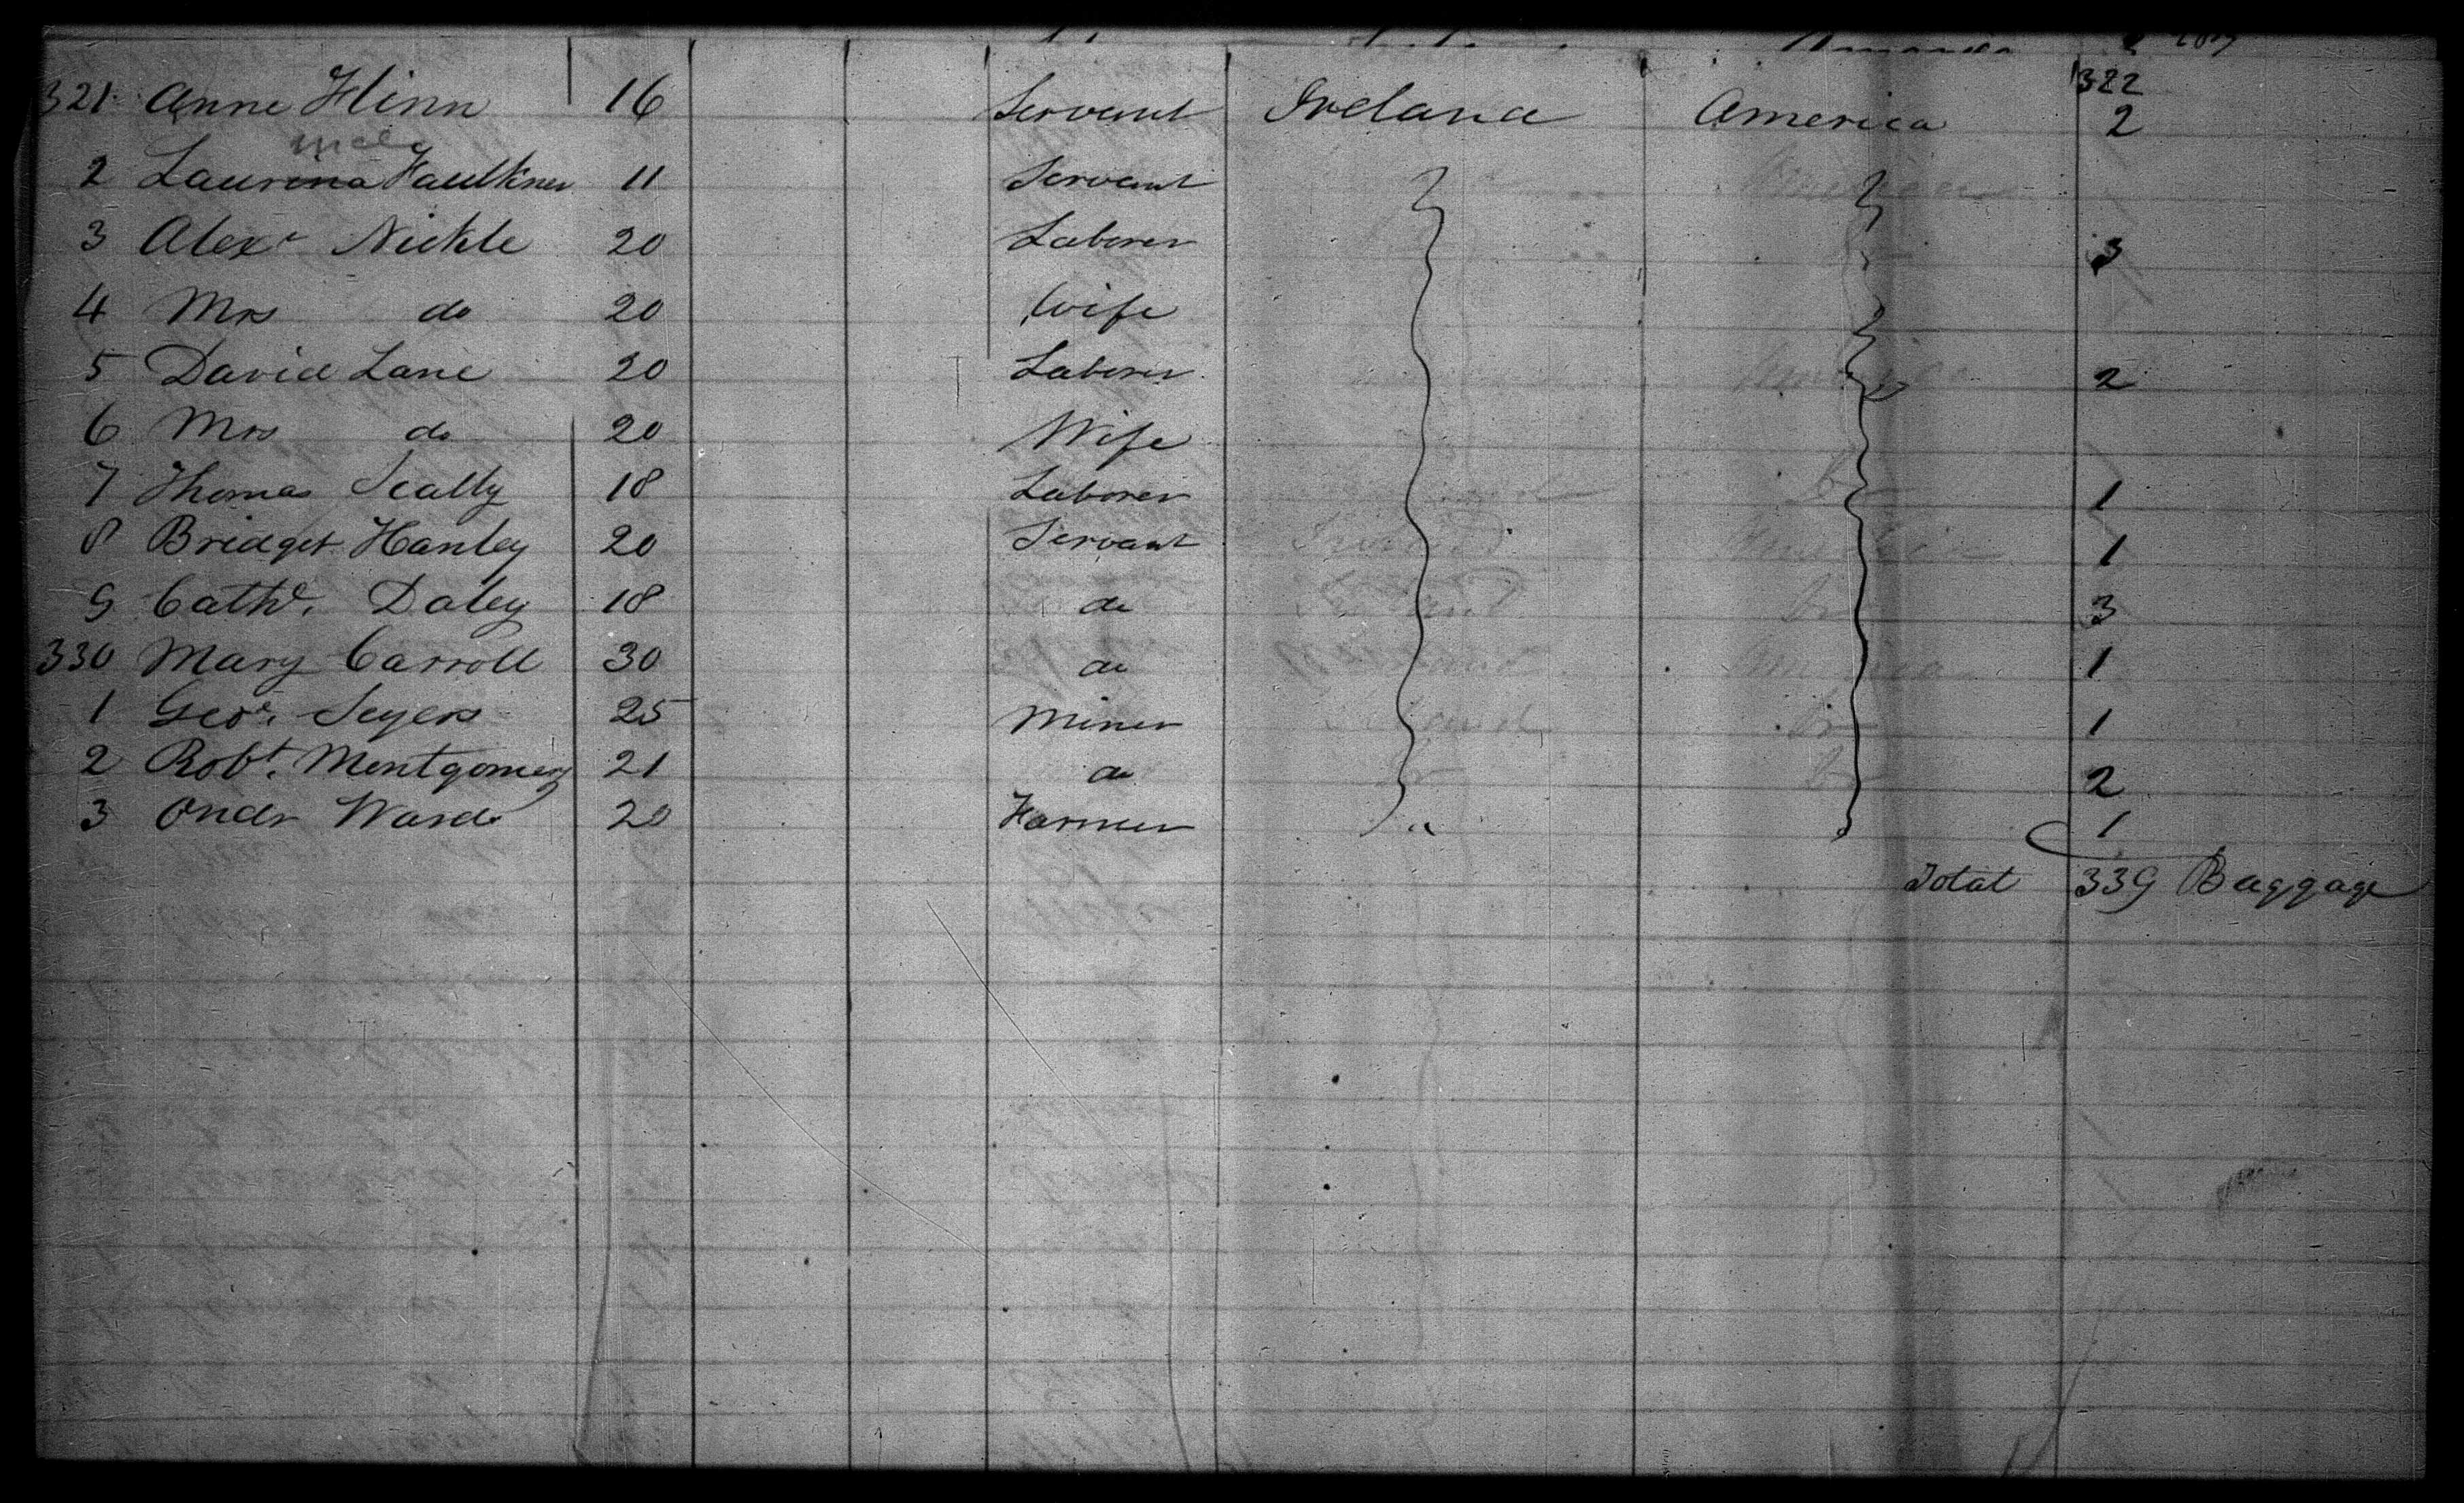 322
321 Anne Flinn 16 Servant Ireland America 2
2 Laurena Faulkner 11 Servant
3 Alexr Nickle 20 Laborer 3
4 Mrs do 20 Wife
5 David Lane 20 Laborer 2
6 Mrs do 20 Wife
7 Thomas Scally 18 Laborer 1
8 Bridget Hanley 20 Servant 1
9 Cathe. Daley 18 do 3
330 Mary Carroll 30 do 1
1 Geoe. Seyers 25 Miner 1
2 Robt. Montgomery 21 do 2
3 Ward 20 Farmer 1
Total 339 Baggage